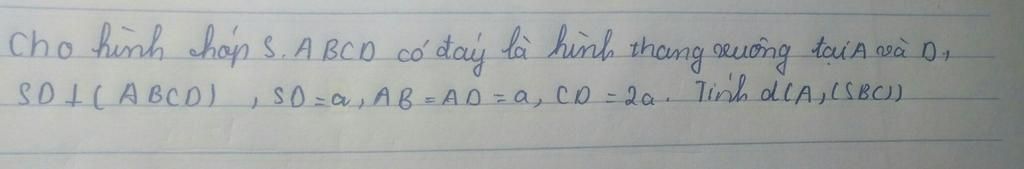 Cho hình chóp S.ABCD có đáy là hình thang vuông tại A và D,
SD ⊥ (ABCD), SD = a, AB = AD = a, CD = 2a. Tính d(A,(SBC))